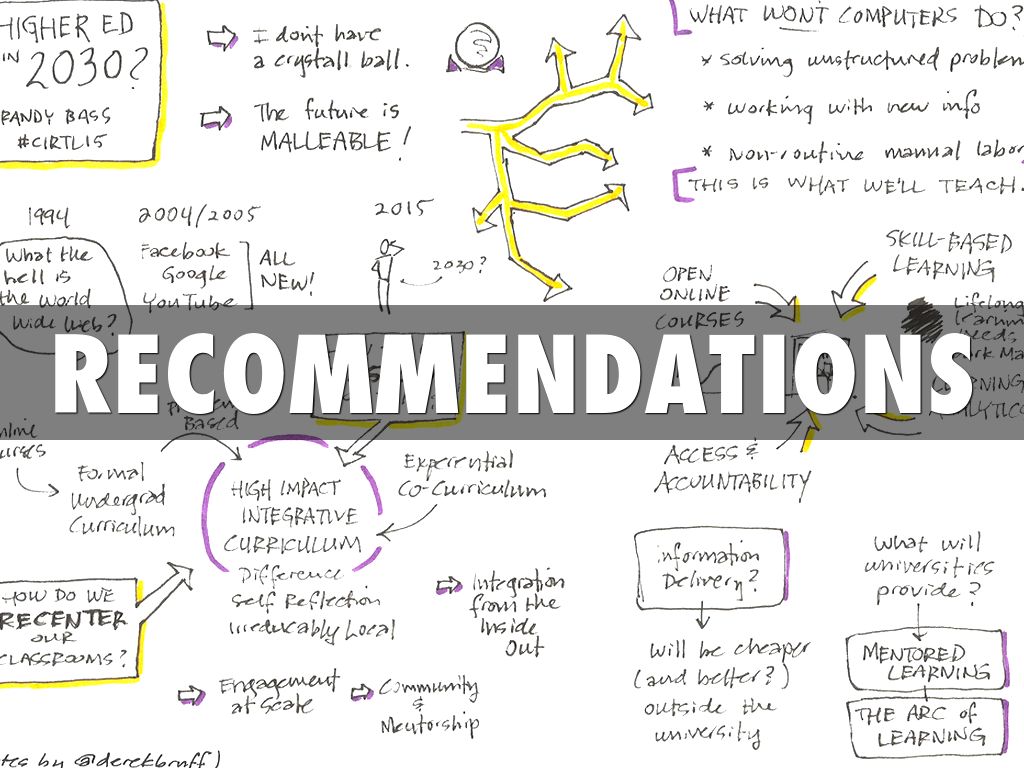 HIGHER ED
IN 2030?
RANDY BASS
#CIRTL15
I don't have
a crystall ball.
The future is
MALLEABLE!
WHAT WON'T COMPUTERS DO?
* solving unstructured problem
* working with new info
* Non-routine manual labor
THIS IS WHAT WE'LL TEACH.
1994
What the
hell is
the world
wide web?
2004/2005
Facebook
Google
YouTube
ALL
NEW!
2015
2030?
OPEN
ONLINE
COURSES
SKILL-BASED
LEARNING
Lifelong
RECOMMENDATIONS
Based
Formal
Undergrad
Curriculum
HIGH IMPACT
INTEGRATIVE
CURRICULUM
Experiential
Co-Curriculum
Difference
Self Reflection
Irreducably Local
ACCESS &
ACCOUNTABILITY
HOW DO WE
RECENTER
OUR
CLASSROOMS?
Integration
from the
Inside
Out
Engagement
at Scale
Community
&
Mentorship
information
Delivery?
will be cheaper
(and better?)
outside the
university
What will
universities
provide?
MENTORED
LEARNING
THE ARC of
LEARNING
by @derekbruff)